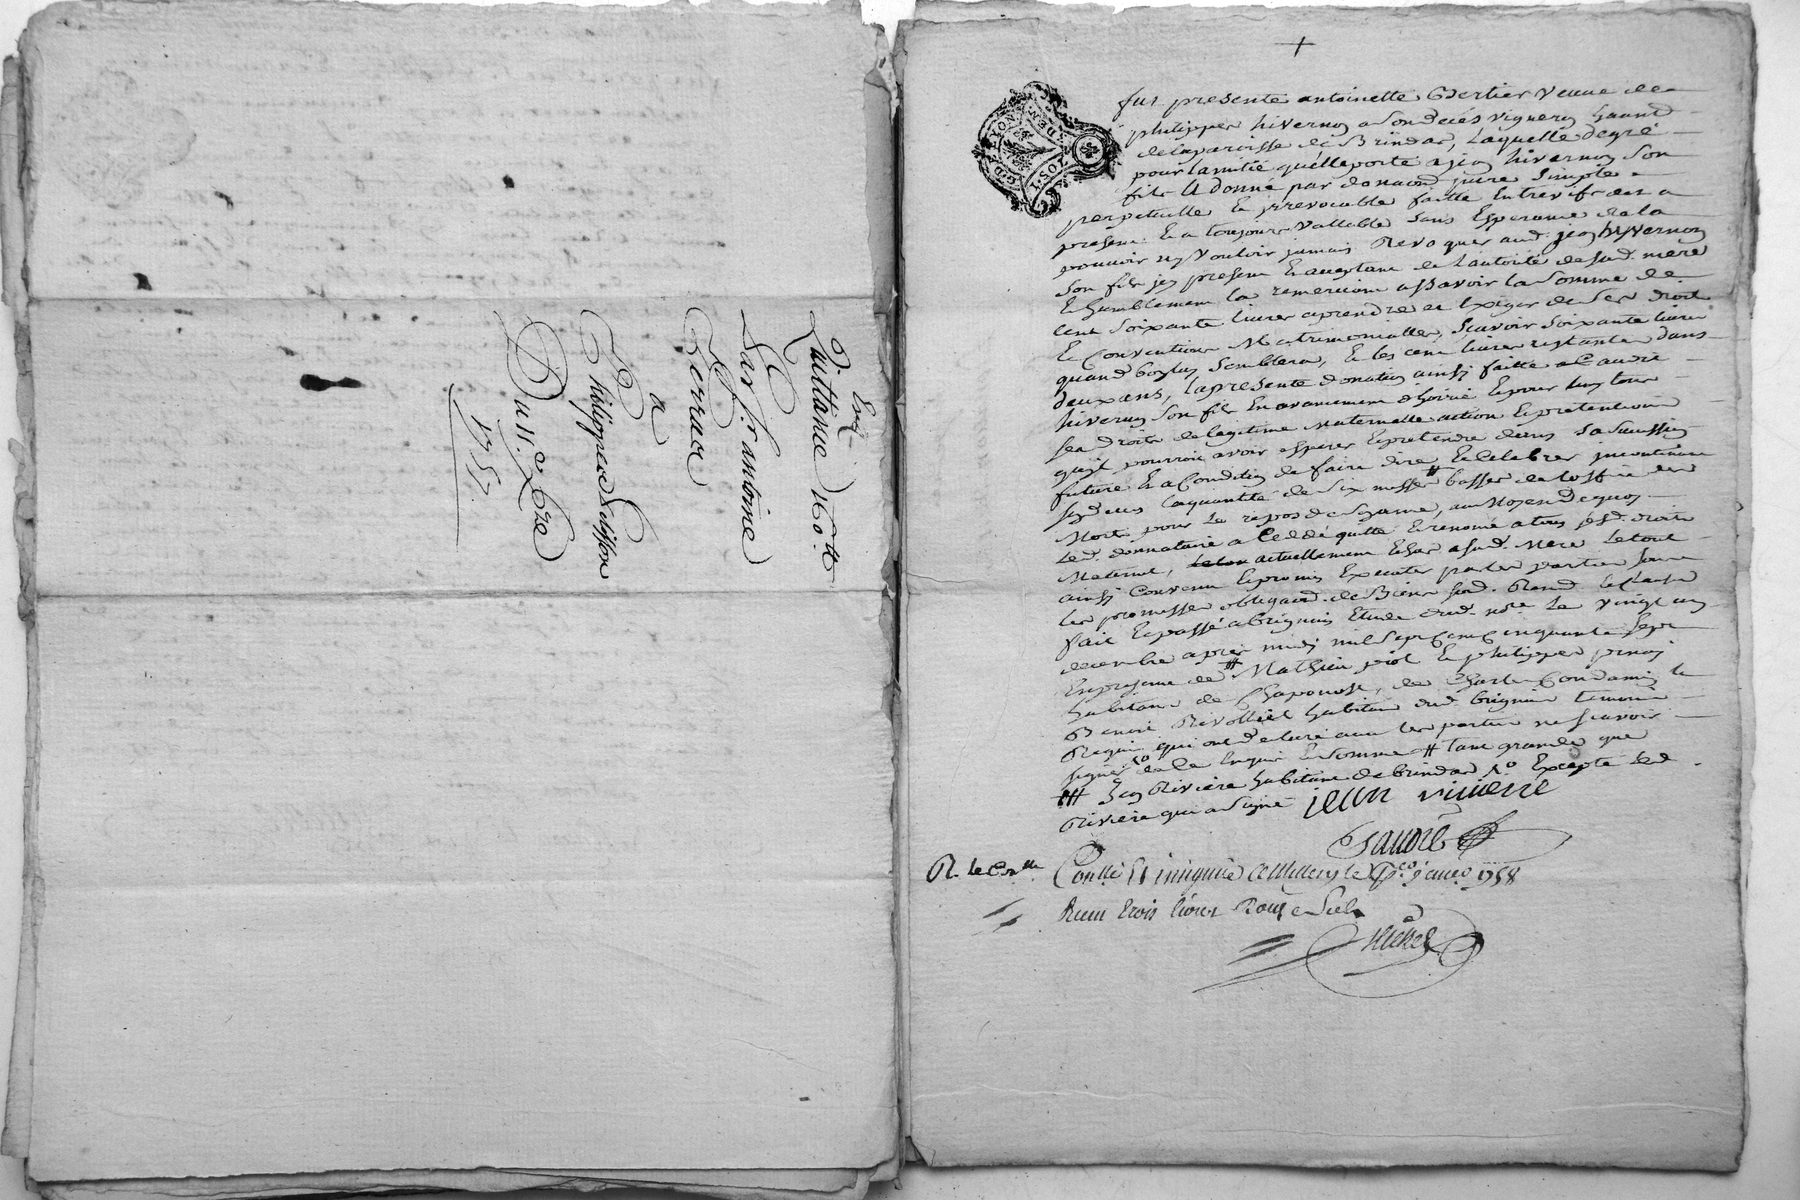 Exp.
Quittance 160 tt
Par s.r antoine
Gervais
a
Philippe
Du 11.e Xbre
1757
+
G.D. LYON
fut presente antoinette Bertier veuve de
philippe hivernon a son deces vigneron habitt
de la paroisse de Brindas, laquelle de gré
pour lamitié quelle porte a jean hivernon son
fils A donné par donaon pure simple
perpetuelle & jrrevocable faitte Entrevifs des a
present Et a toujours vallable sans Esperance de la
pouvoir ny vouloir jamais Revoquer aud. jean hyvernon
son fils jcy present Et acceptant de L'autorité de sad. mere
Et humblement la remerciant assavoir la somme de
cent soixante livres aprendre et Exiger de ses droits
Et Convention Matrimonialles, scavoir soixante livres
quand bon luy semblera, Et les cent livres restante dans
deux ans, la presente donation ainsi faitte aud.
hivernon son fils En avancement dhoirie Et pour luy tenir
ses droits de legitime maternelle action Et pretention
quil pourroit avoir esperer Et pretendre dans sa succession
future Et a Condition de faire dire Et Celebrer
laquantité de six messes basses de loffice des
Morts pour le repos de son ame, au Moyen de quoy
led. donnataire a Cedé quitté Et renoncé a tous sesd. droits
Maternel, actuellement Echus a sad. Mere Le tout
ainsi Convenu Et promis Executer par les parties sous
les promesse obligaon de Biens sud. Renond. Et clause
fait Et passé a brignais Etude dud. nore Le vingt un
decembre apres midy mil sept Cent Cinquante sept
En presence de # Mathieu piot Et philippe
habitant de Chaponost, de Charle Condamin &
Benoit Rivollier habitant dud. brignais temoins
Requis qui ont declaré avec les parties ne scavoir
signer de ce Enquis Et somme # tant grande que
## Jean Riviere habitant de brindas Excepté led.
Riviere qui a signé jean riviere
Gaudré
R. le Con.lle Con.lle & insignüé a Millery le 1758
Receu trois livres Douze Sols